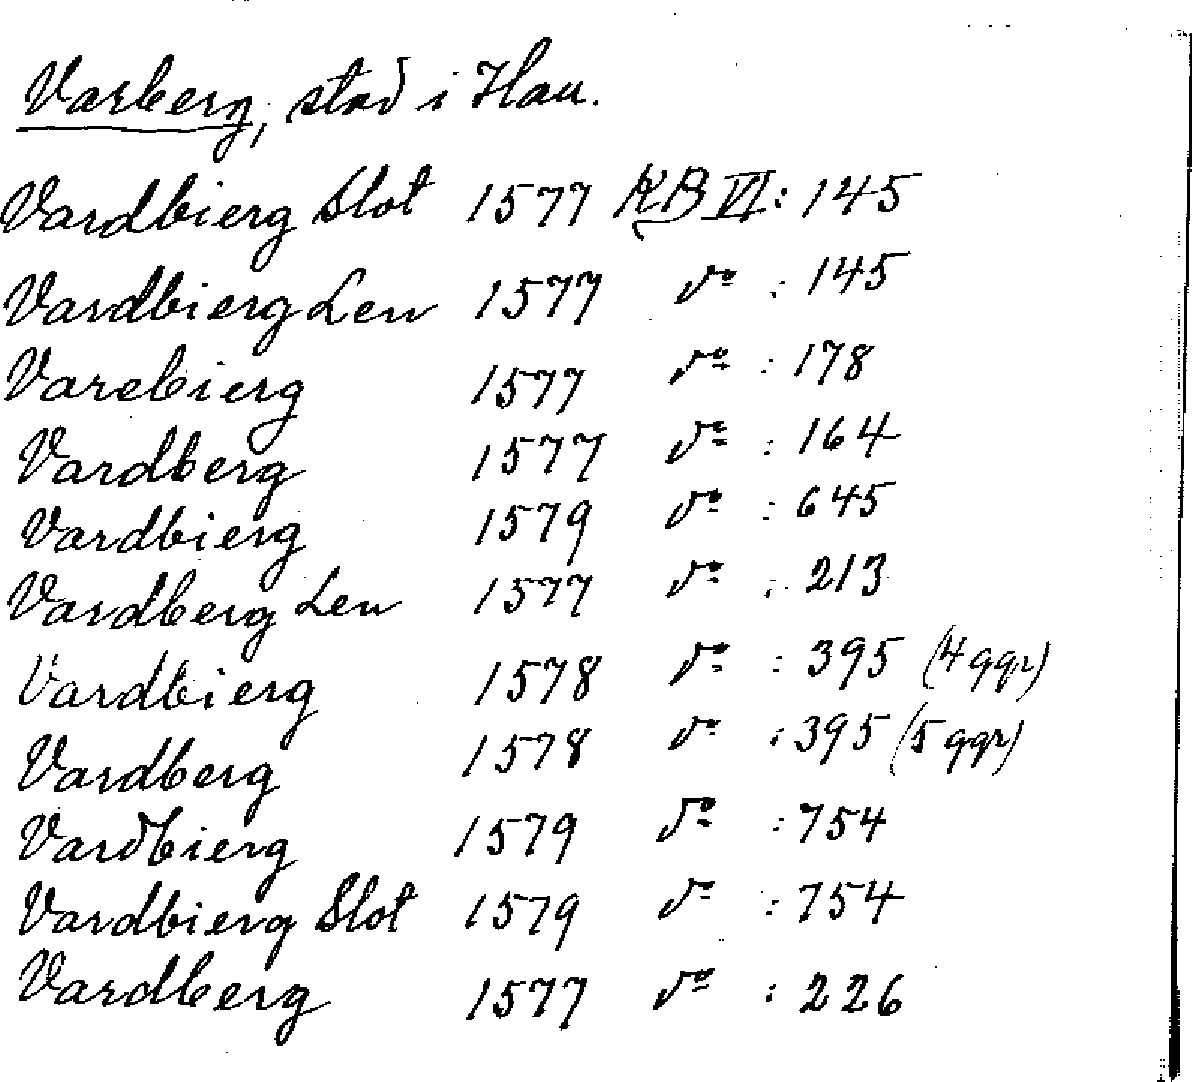 Varberg, stad i Hall.
Vardbierg Slot 1577 KB VI: 145
Vardbierg Len 1577 do : 145
Varebierg 1577 do : 178
Vardberg 1577 do : 164
Vardbierg 1579 do : 645
Vardberg Len 1577 do : 213
Vardbierg 1578 do : 395 (4 ggr)
Vardberg 1578 do : 395 (5 ggr)
Vardbierg 1579 do : 754
Vardbierg Slot 1579 do : 754
Vardberg 1577 do : 226